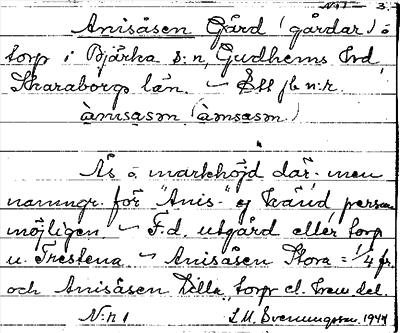 N:r 1 3.
Anisåsen Gård (gårdar) o
torp i Bjärka s:n, Gudhems hd
Skaraborgs län. — Ett jb n:r.
ànisåsm (àmsåsm)
Ås o markhöjd där- men
namngr. för "Anis-" ej känd, person
möjligen. — F.d. utgård eller torp
u. Trestena — Anisåsen Stora = 1/4 fr.
och Anisåsen Lilla, torp el. hem. del.
N:r 1 L.M. Svennungsson. 1944